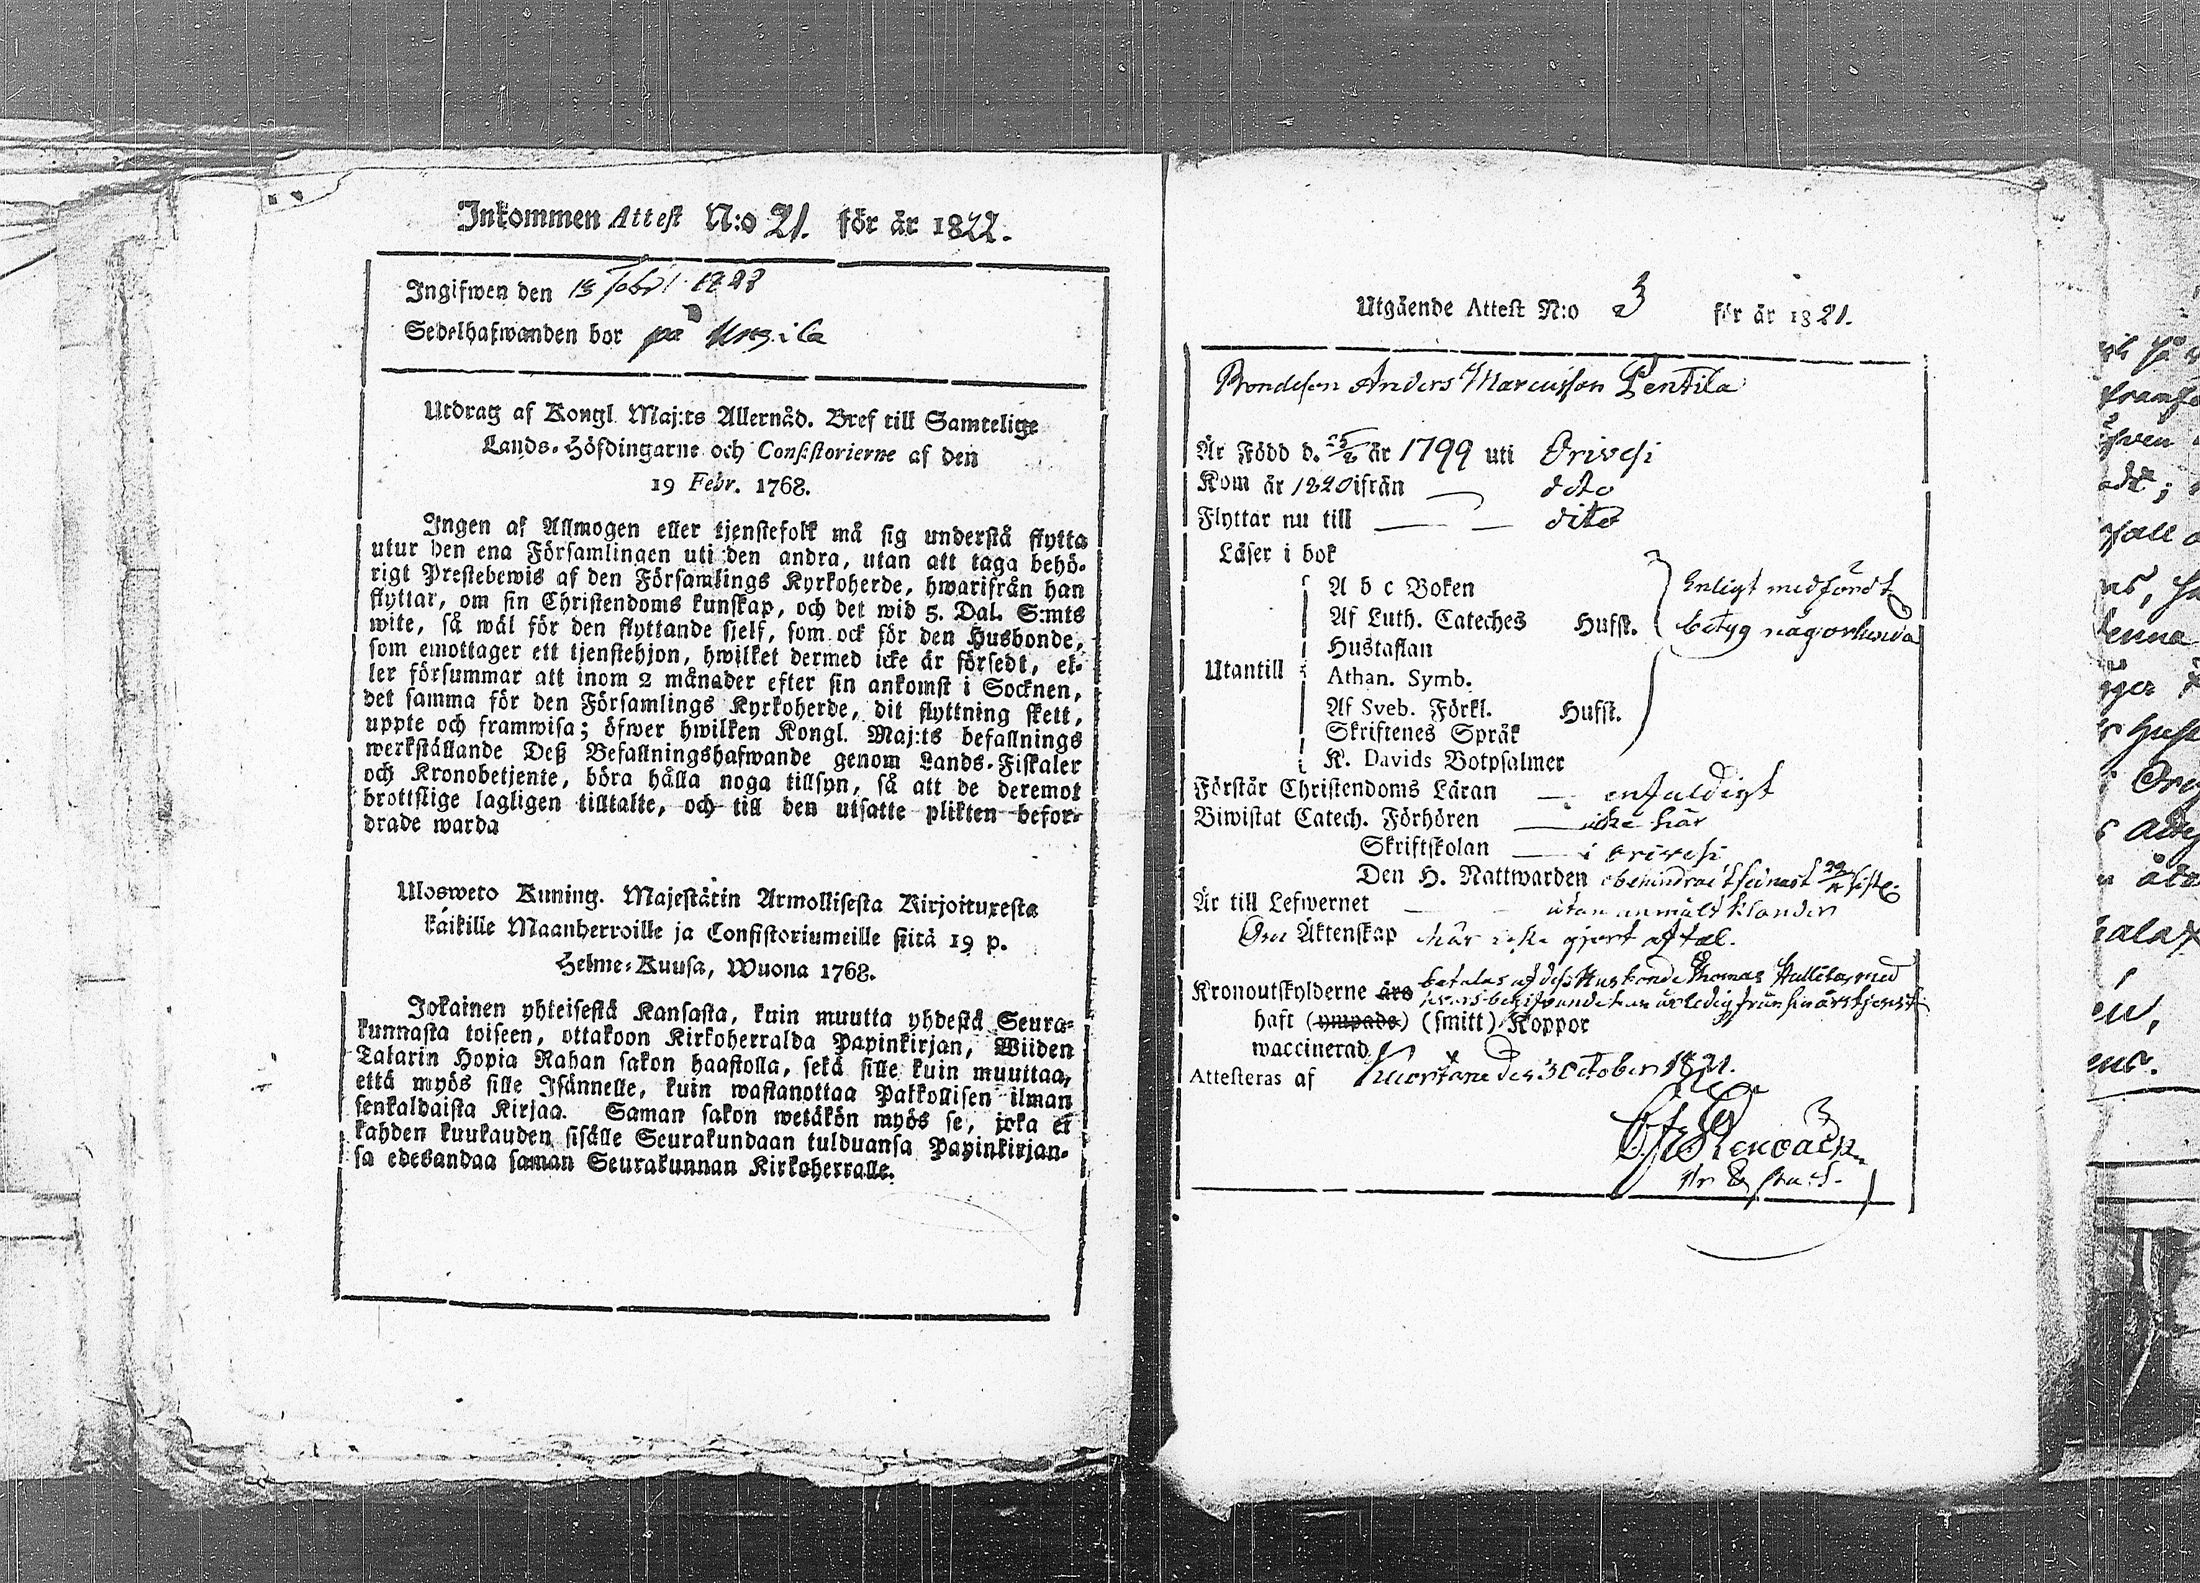 Inkommen Attest N:o 21. för år 1822.
Ingifwen den 13 Febr 1822
Sedelhafwanden bor på
Utdrag af Kongl Maj:ts Allernåd. Bref till Samtelige
Lands-Höfdingarne och Consistorierne af den
19 Febr. 1768.
Ingen af Allmogen eller tjenstefolk må sig understå flytta
utur den ena Församlingen uti den andra, utan att taga behö-
rigt Prestebewis af den Församlings Kyrkoherde, hwarifrån han
flyttar, om sin Christendoms kunskap, och det wid 5. Dal. S:mts
wite, så wäl för den flyttande sjelf, som ock för den Husbonde,
som emottager ett tjenstehjon, hwilket dermed icke är försedt, el-
ler försummar att inom 2 månader efter sin ankomst i Socknen,
det samma för den Församlings Kyrkoherde, dit flyttning skett,
uppte och framwisa; öfwer hwilken Kongl. Maj:ts befallnings
werkställande Deß Befallningshafwande genom Lands-Fiskaler
och Kronobetjente, böra hålla noga tillsyn, så att de deremot
brottslige lagligen tilltalte, och till den utsatte plikten befor-
drade warda
Ulosweto Kuning. Majestätin Armollisesta Kirjoituxesta
kaikille Maanherroille ja Consistoriumeille siitä 19 p.
Helme-Kuusa, Wuona 1768.
Jokainen yhteisestä Kansasta, kuin muutta yhdestä Seura-
kunnasta toiseen, ottakoon Kirkoherralda Papinkirjan, Wiiden
Talarin Hopia Rahan sakon haastolla, sekä sille kuin muuttaa,
että myös sille Isännelle, kuin wastanottaa Palkollisen ilman
senkaldaista Kirjaa. Saman sakon wetäkön myös se, joka ei
kahden kuukauden sisälle Seurakundaan tulduansa Papinkirjan-
sa edesandaa saman Seurakunnan Kirkoherralle.
Utgående Attest N:o 3 för år 1821.
Bondeson Anders Marcusson Pentila
Är Född d. 25/8 år 1799 uti Orivesi
Kom år 1820 ifrån — dito
Flyttar nu till — — dito
Läser i bok
A b c Boken Enligt medfördt
Af Luth. Cateches Hufst. betyg någorlunda
Hustaflan
Utantill Athan. Symb.
Af Sveb. Förkl. Hufst.
Skriftenes Språk
K. Davids Botpsalmer
Förstår Christendoms Läran — enfaldigt
Biwistat Catech. Förhören — icke här
Skriftskolan — i Orivesi
Den H. Nattwarden obehindradt senast
Är till Lefwernet — utan anmäldt klander
Om Äktenskap här icke gjort aftal.
Kronoutskylderne åro betalas af dess Husbonde Thomas med
är ledig från sin årstjenst
haft (ympade) (smitt) Koppor
waccinerad
Attesteras af den 3 October 1821.